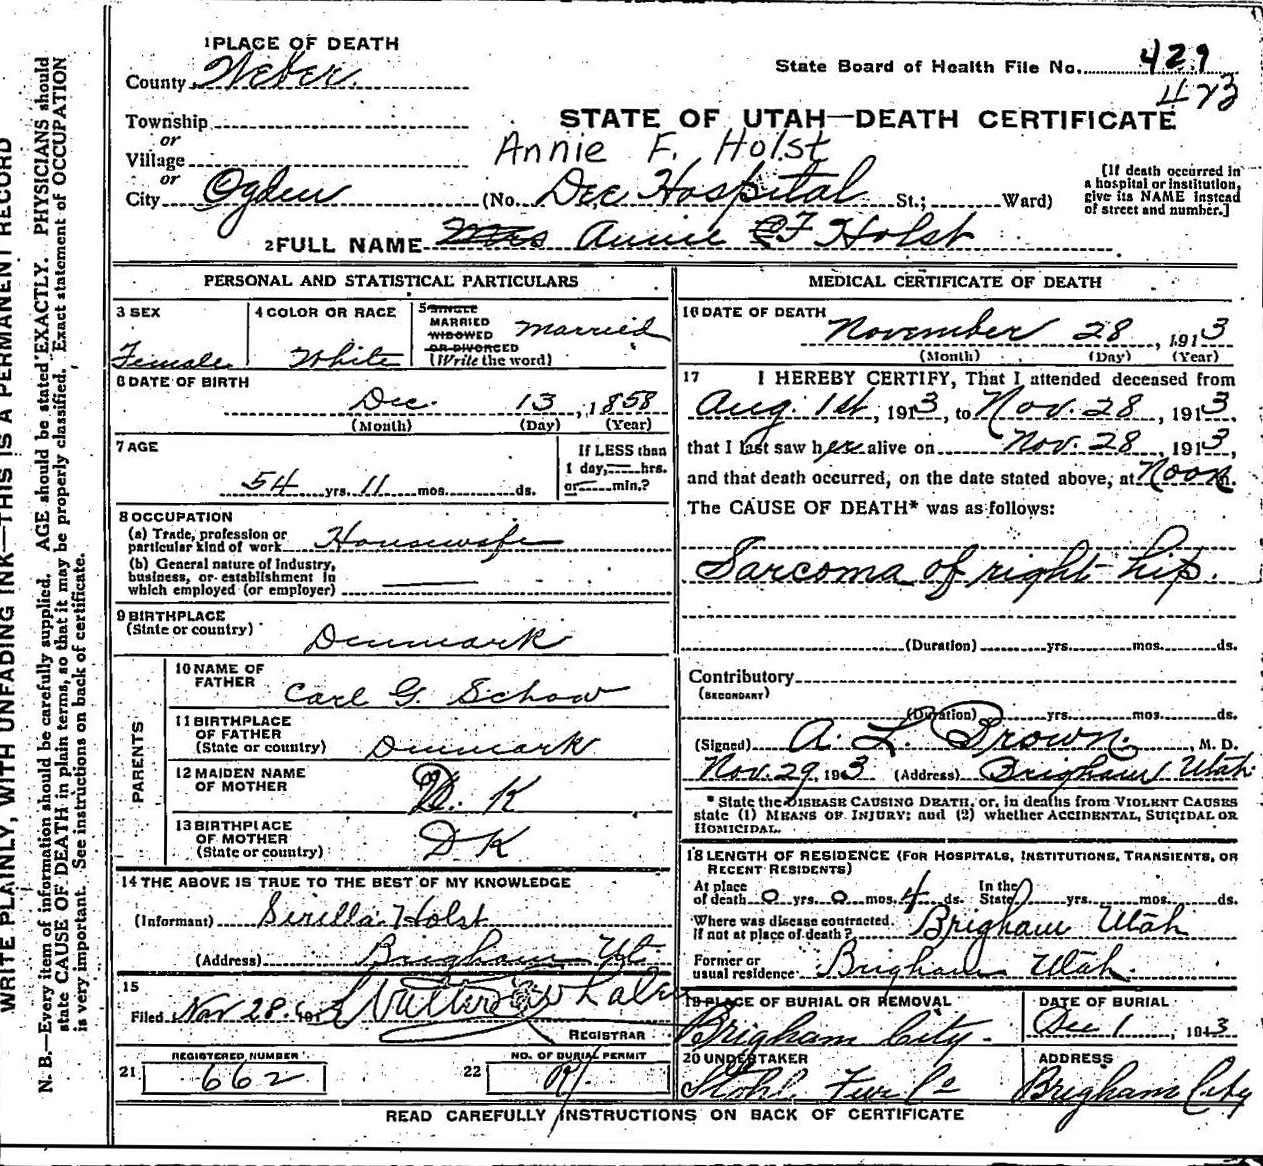 WRITE PLAINLY, WITH UNFADING INK—THIS IS A PERMANENT RECORD
N. B.—Every item of information should be carefully supplied. AGE should be stated EXACTLY. PHYSICIANS should
state CAUSE OF DEATH in plain terms, so that it may be properly classified. Exact statement of OCCUPATION
is very important. See instructions on back of certificate.
1 PLACE OF DEATH
County Weber
State Board of Health File No. 429
473
STATE OF UTAH—DEATH CERTIFICATE
Township
or
Village
or
Annie F. Holst
City Ogden (No. Dee Hospital St.; Ward)
[If death occurred in
a hospital or institution,
give its NAME instead
of street and number.]
2 FULL NAME Mrs Annie F Holst
PERSONAL AND STATISTICAL PARTICULARS
3 SEX
Female
4 COLOR OR RACE
White
5 SINGLE
MARRIED
WIDOWED
OR DIVORCED
(Write the word)
Married
6 DATE OF BIRTH
Dec. 13, 1858
(Month) (Day) (Year)
7 AGE
54 yrs. 11 mos. ds.
If LESS than
1 day, hrs.
or min.?
8 OCCUPATION
(a) Trade, profession or
particular kind of work Housewife
(b) General nature of industry,
business, or establishment in
which employed (or employer)
9 BIRTHPLACE
(State or country) Denmark
PARENTS
10 NAME OF
FATHER Carl G. Schow
11 BIRTHPLACE
OF FATHER
(State or country) Denmark
12 MAIDEN NAME
OF MOTHER D. K
13 BIRTHPLACE
OF MOTHER
(State or country) D K
14 THE ABOVE IS TRUE TO THE BEST OF MY KNOWLEDGE
(Informant) Sirilla Holst
(Address) Brigham Ut
15
Filed Nov 28. Walter Whalen
REGISTRAR
21 REGISTERED NUMBER
662
22 NO. OF BURIAL PERMIT
MEDICAL CERTIFICATE OF DEATH
16 DATE OF DEATH
November 28, 1913
(Month) (Day) (Year)
17 I HEREBY CERTIFY, That I attended deceased from
Aug. 1st, 1913, to Nov. 28, 1913,
that I last saw her alive on Nov. 28, 1913,
and that death occurred, on the date stated above, at Noon m.
The CAUSE OF DEATH* was as follows:
Sarcoma of right hip.
(Duration) yrs. mos. ds.
Contributory
(SECONDARY)
(Duration) yrs. mos. ds.
(Signed) A. L. Brown, M. D.
Nov. 29, 1913 (Address) Brigham Utah.
* State the DISEASE CAUSING DEATH, or, in deaths from VIOLENT CAUSES
state (1) MEANS OF INJURY; and (2) whether ACCIDENTAL, SUICIDAL OR
HOMICIDAL.
18 LENGTH OF RESIDENCE (FOR HOSPITALS, INSTITUTIONS, TRANSIENTS, OR
RECENT RESIDENTS)
At place
of death 0 yrs. 0 mos. 4 ds. In the
State yrs. mos. ds.
Where was disease contracted
if not at place of death? Brigham Utah
Former or
usual residence Brigham Utah.
19 PLACE OF BURIAL OR REMOVAL
Brigham City.
DATE OF BURIAL
Dec 1, 1913
20 UNDERTAKER
Stohl Fur Co
ADDRESS
Brigham City
READ CAREFULLY INSTRUCTIONS ON BACK OF CERTIFICATE